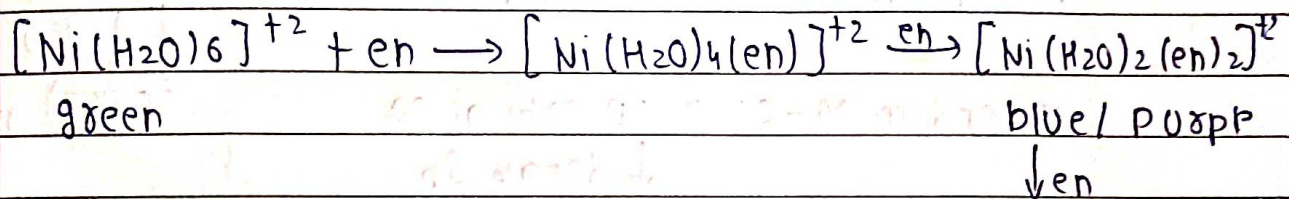 [Ni(H2O)6]+2 + en ⟶ [Ni(H2O)4(en)]+2 en→ [Ni(H2O)2(en)2]+2
green blue/purple
↓en